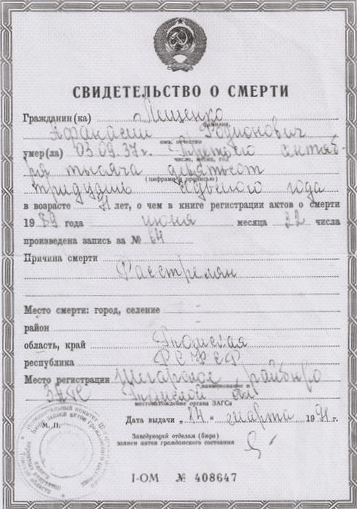 СВИДЕТЕЛЬСТВО О СМЕРТИ
Гражданин(ка)
фамилия,
Афанасий Родионович
имя, отчество
умер(ла) 03.09.37г.
число, месяц, год
тысяча девятьсот
(цифрами и прописью)
тридцать седьмого года
в возрасте лет, о чем в книге регистрации актов о смерти
19 89 года июня месяца 22 числа
произведена запись за № 64
Причина смерти
Расстрелян
Место смерти: город, селение
район
область, край Томская
республика РСФСР
Место регистрации Шегарское райбюро
наименование и
ЗАГС Томской обл
местонахождение органа ЗАГСа
Дата выдачи 14 марта 19 91 г.
М. П.
Заведующий отделом (бюро)
записи актов гражданского состояния
I-ОМ № 408647